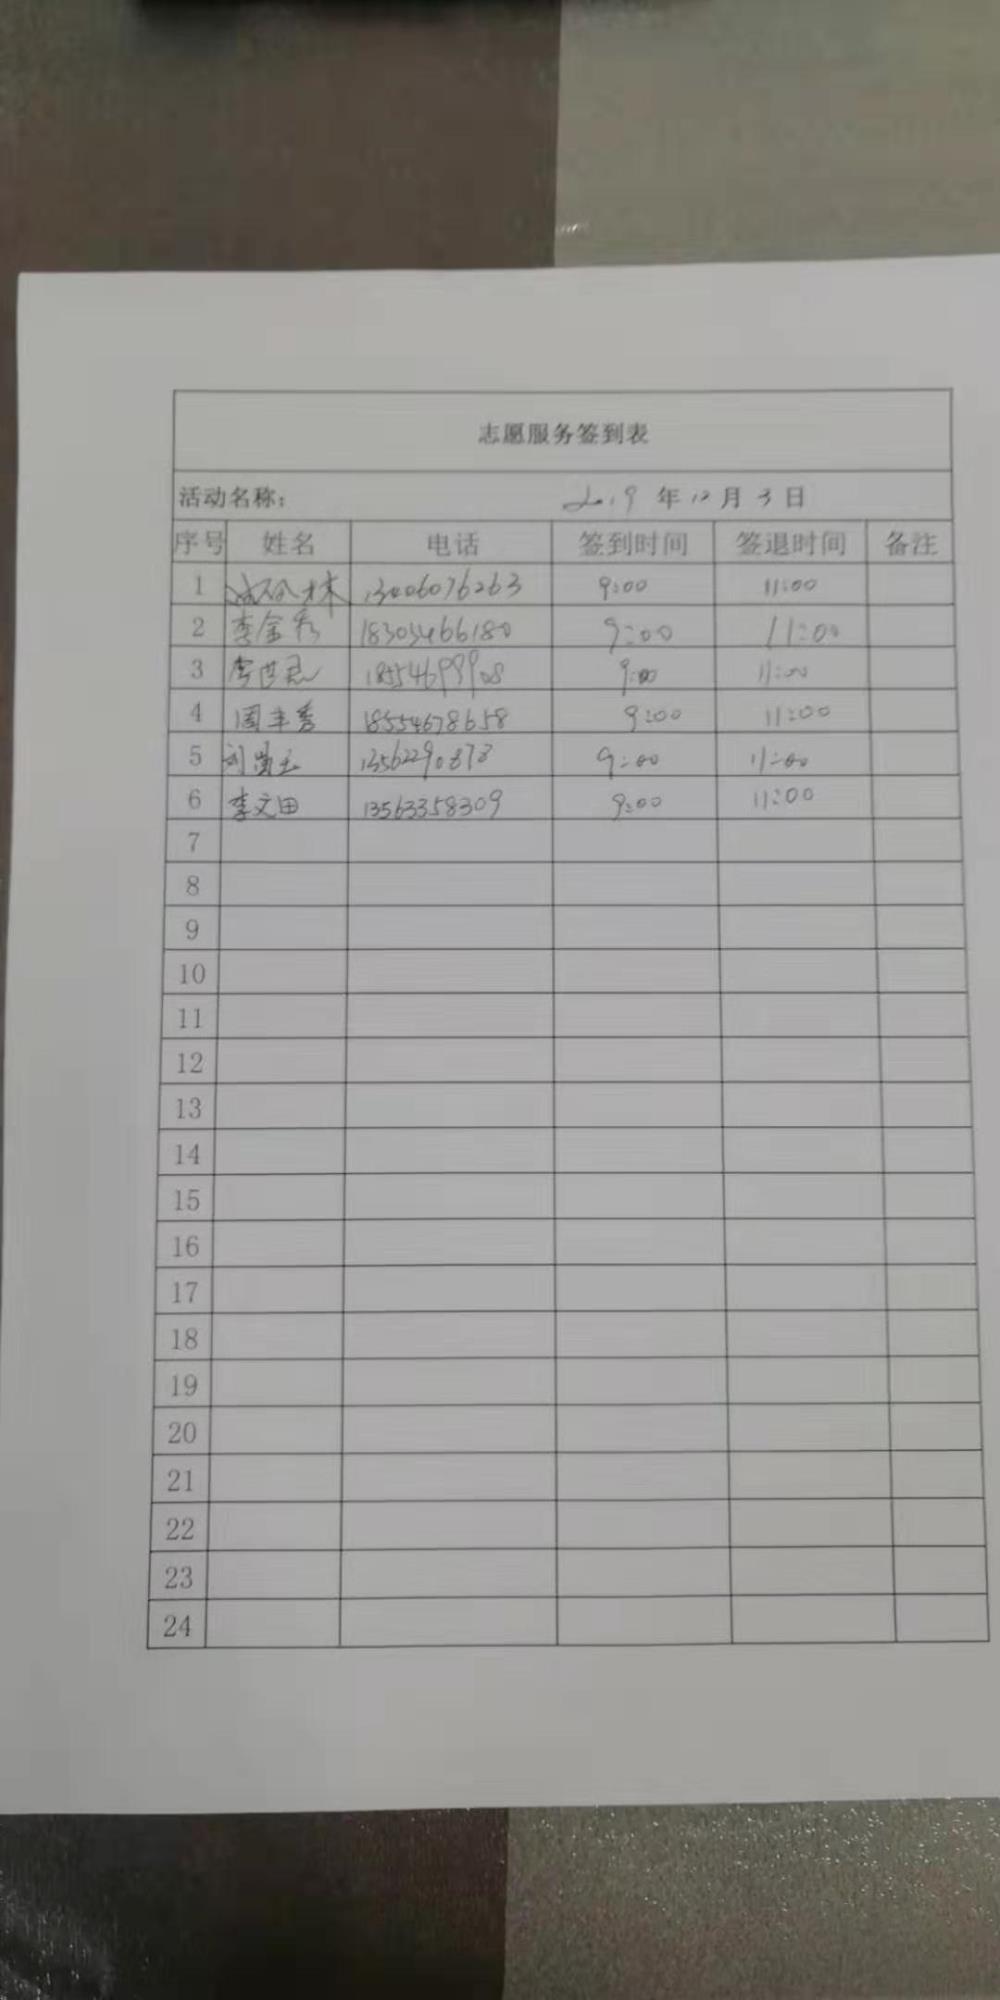 志愿服务签到表
活动名称： 2019 年 12 月 3 日
序号 姓名 电话 签到时间 签退时间 备注
1 13406076263 9:00 11:00
2 李金秀 18303466180 9:00 11:00
3 李世君 18554699908 9:00 11:00
4 周丰秀 18554678658 9:00 11:00
5 9:00 11:00
6 李文田 13563358309 9:00 11:00
7
8
9
10
11
12
13
14
15
16
17
18
19
20
21
22
23
24